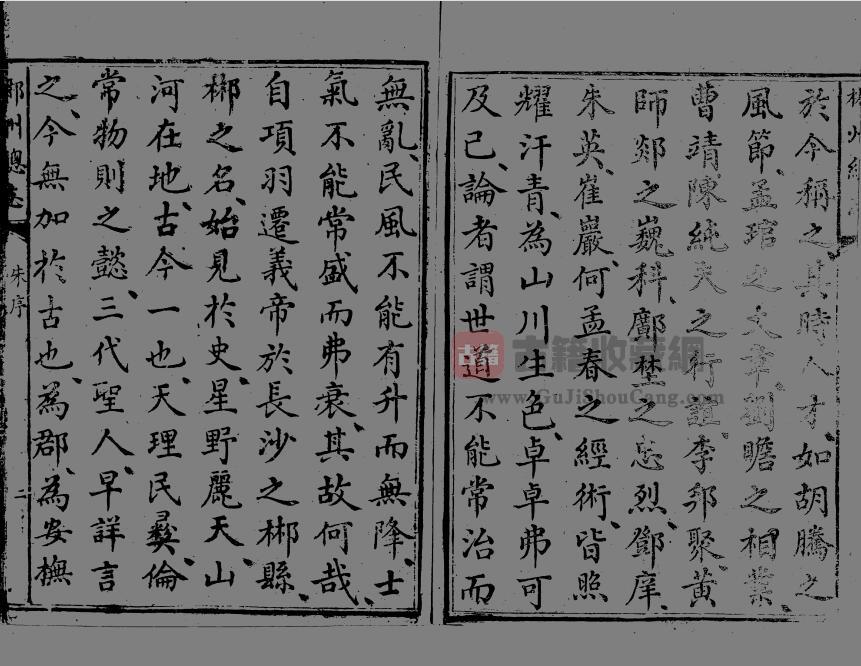 於今稱之其時人才、如胡騰之
風節、孟琯之文章、劉瞻之相業、
曹靖、陳純夫之行誼、李郛聚、黃
師郯之巍科、鄺埜之忠烈、鄧庠、
朱英、崔巖、何孟春之經術、皆照
耀汗青、為山川生色、卓卓弗可
及已、論者謂世道不能常治而
無亂、民風不能有升而無降、士
氣不能常盛而弗衰、其故何哉、
自項羽遷義帝於長沙之郴縣、
郴之名、始見於史、星野麗天、山
河在地、古今一也、天理民彝、倫
常物則之懿、三代聖人、早詳言
之、今無加於古也、為郡、為安橅
郴州總志
朱序
二
古籍
古籍收藏網
www.GuJiShouCang.com